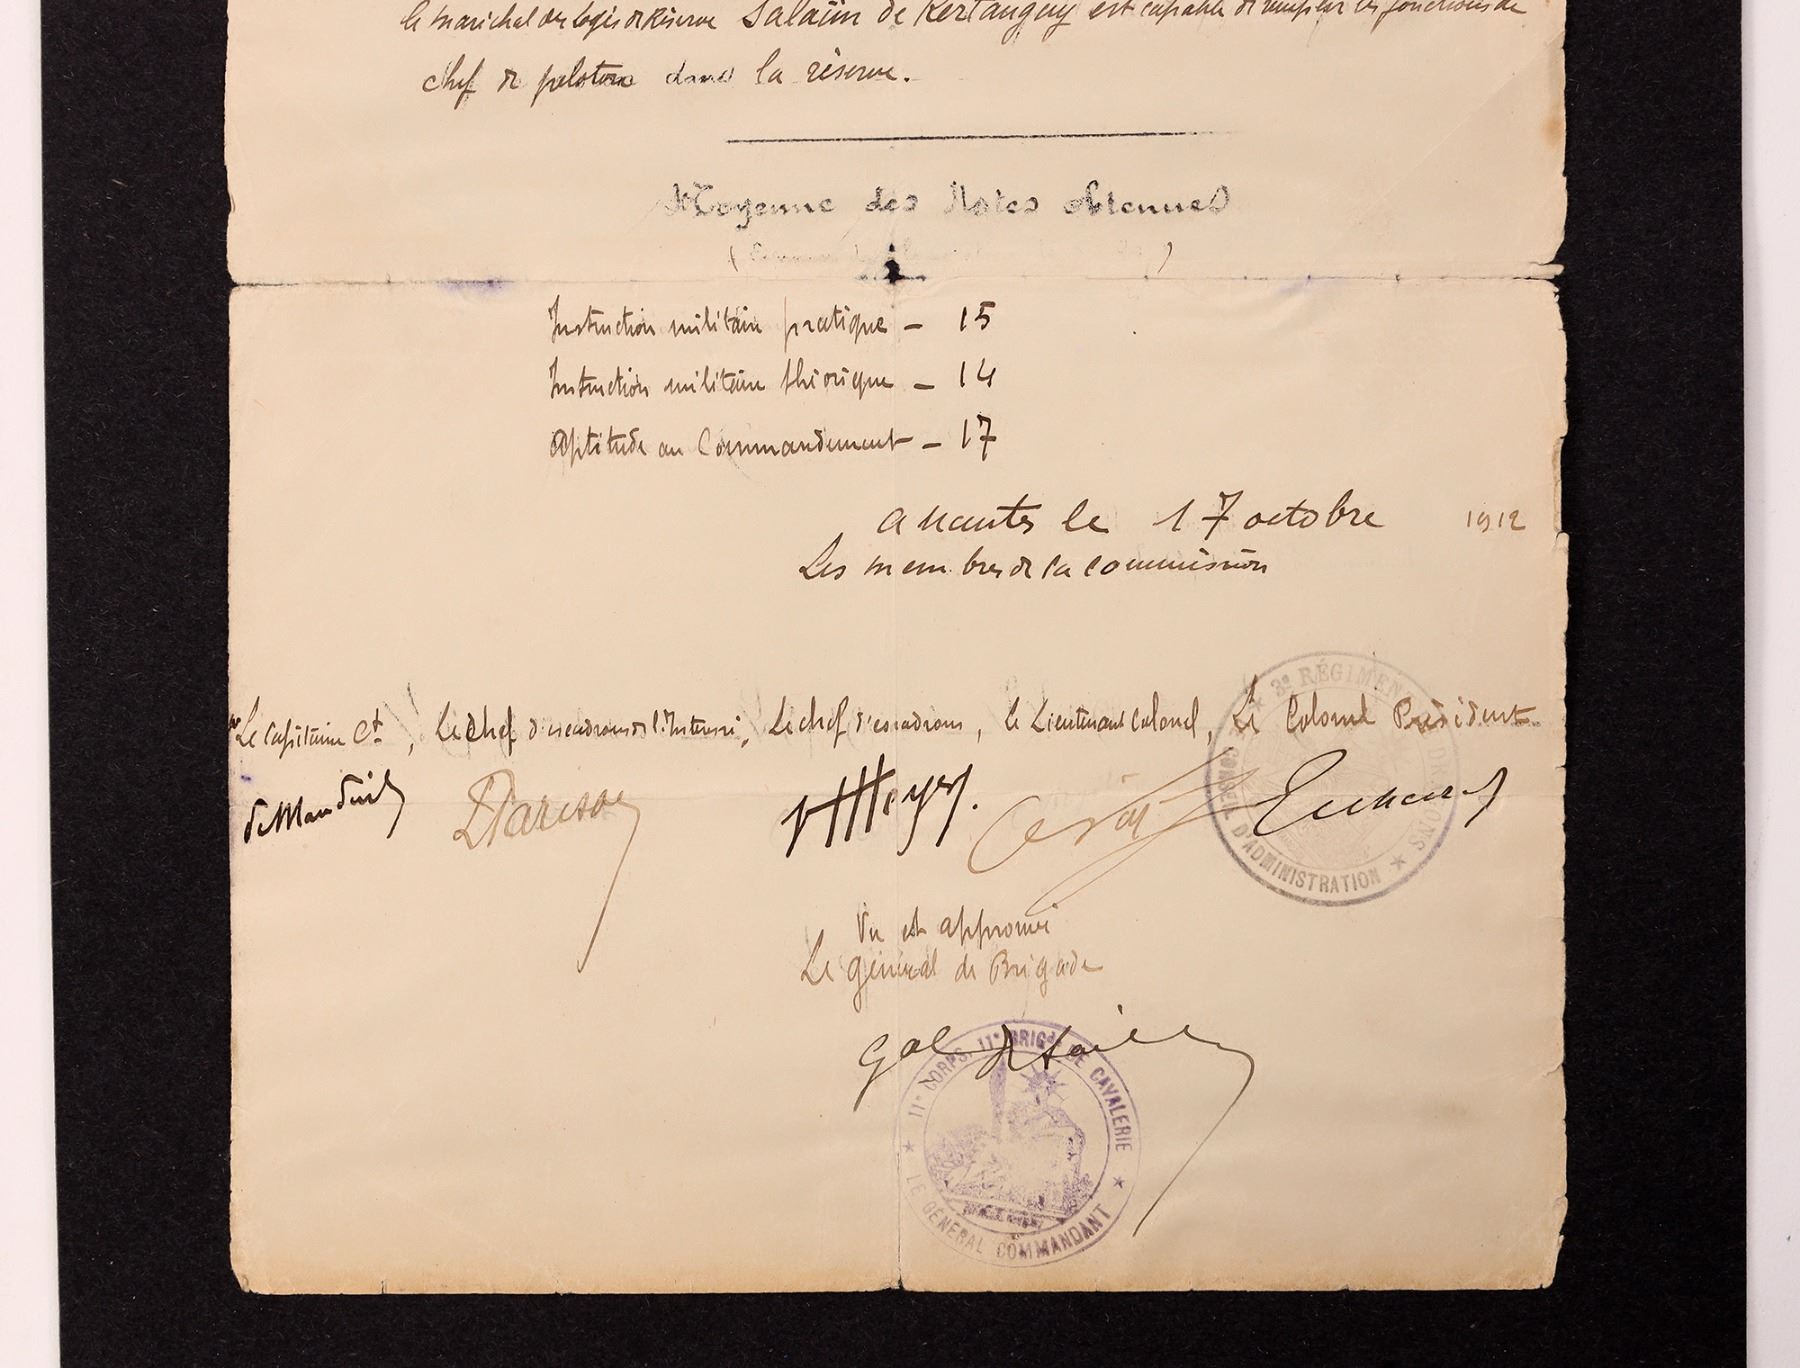 le maréchal des logis de Réserve Salaün de Kertanguy est capable de remplir les fonctions de
chef de peloton dans la réserve.
Moyenne des Notes obtenues
Instruction militaire pratique – 15
Instruction militaire théorique – 14
Aptitude au Commandement – 17
A Nantes le 17 octobre 1912
Les membres de la commission
Le Capitaine Ct, Le Chef d'escadrons de l'Intérieur, Le chef d'escadrons, le Lieutenant Colonel, Le Colonel Président
de Mauduit
3e RÉGIMENT DE DRAGONS
CONSEIL D'ADMINISTRATION
Vu et approuvé
Le général de Brigade
Gal
11e CORPS. 11e BRIGde DE CAVALERIE
LE GÉNÉRAL COMMANDANT